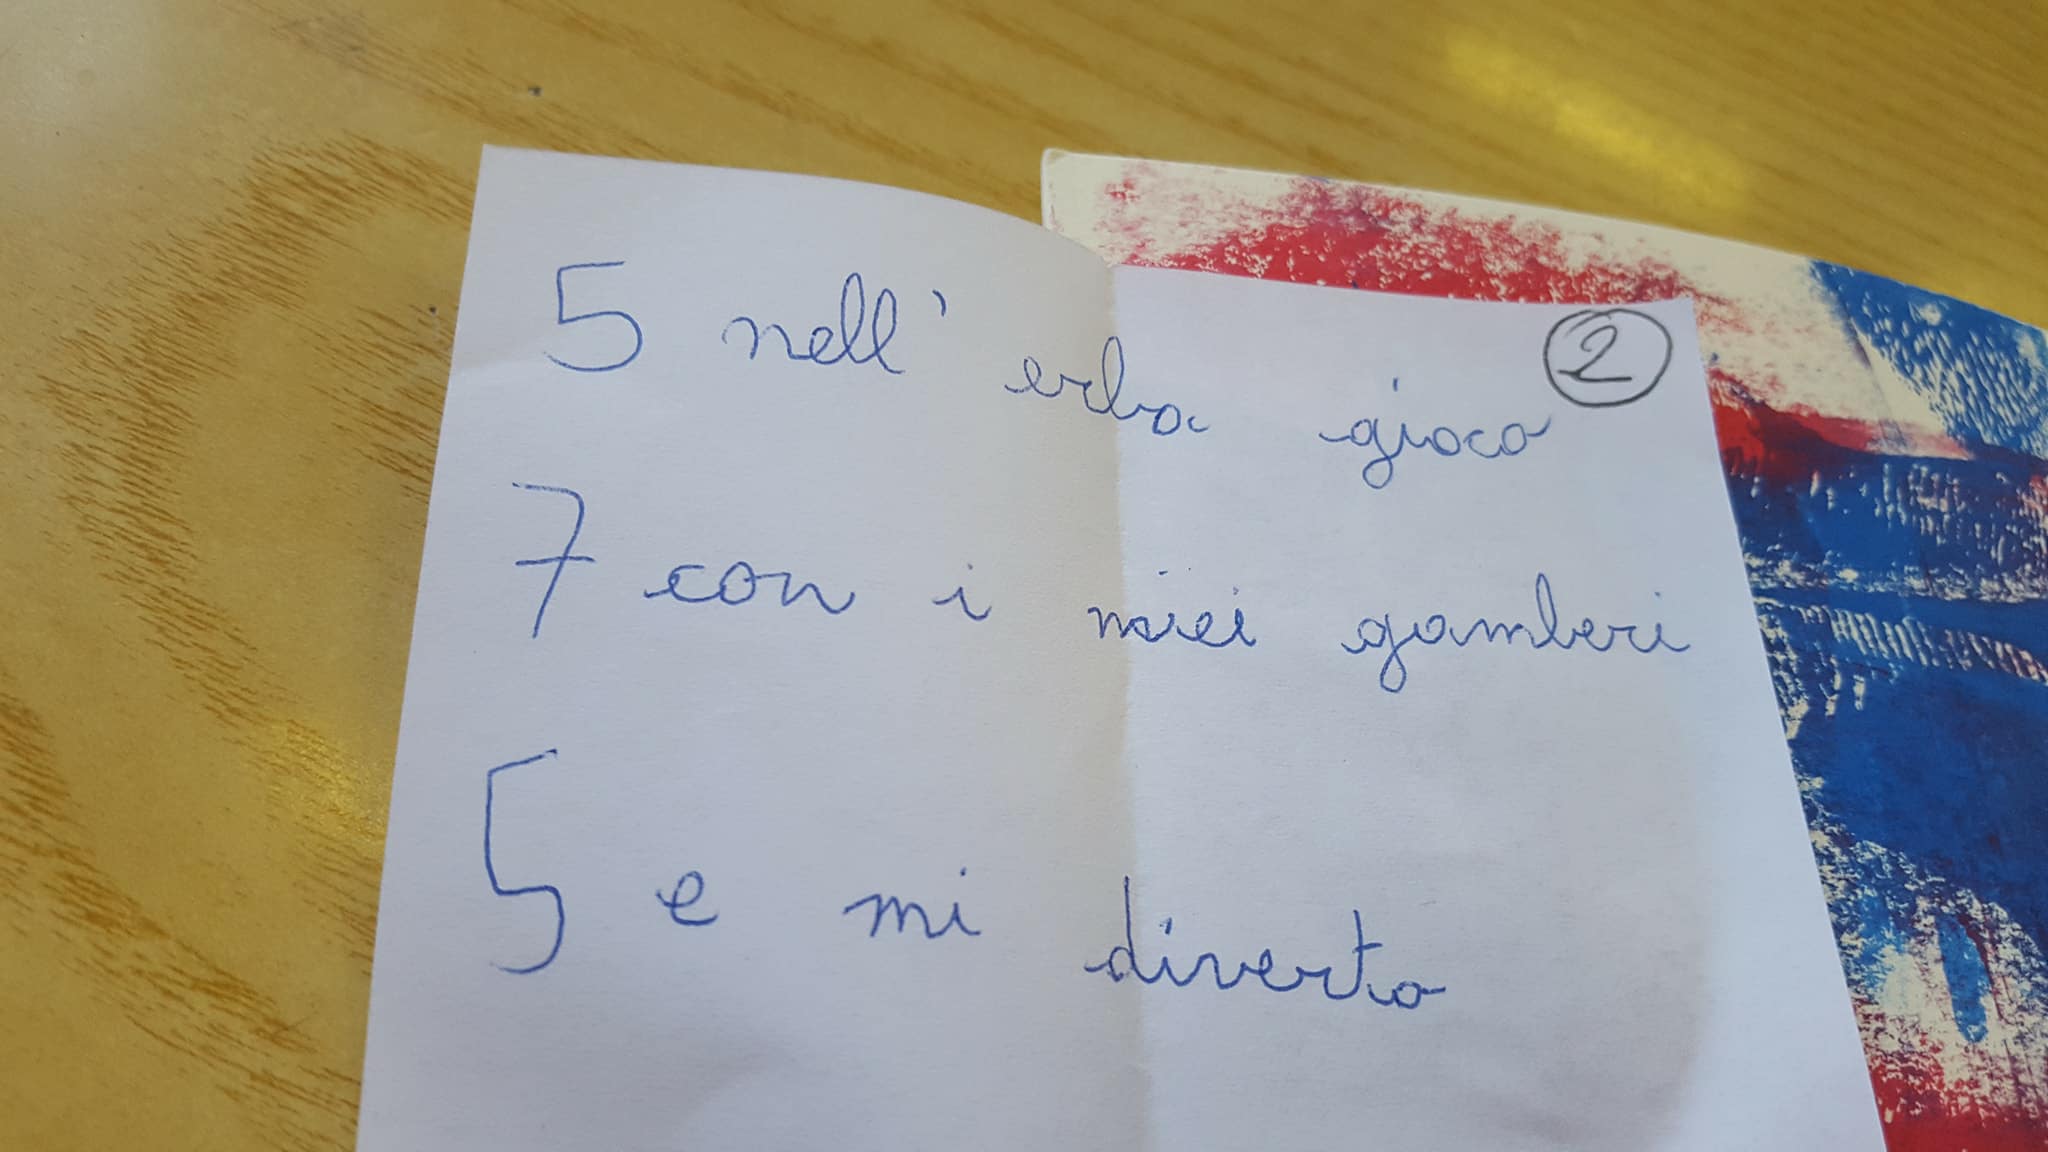 2
5 nell' erba gioco
7 con i miei gamberi
5 e mi diverto